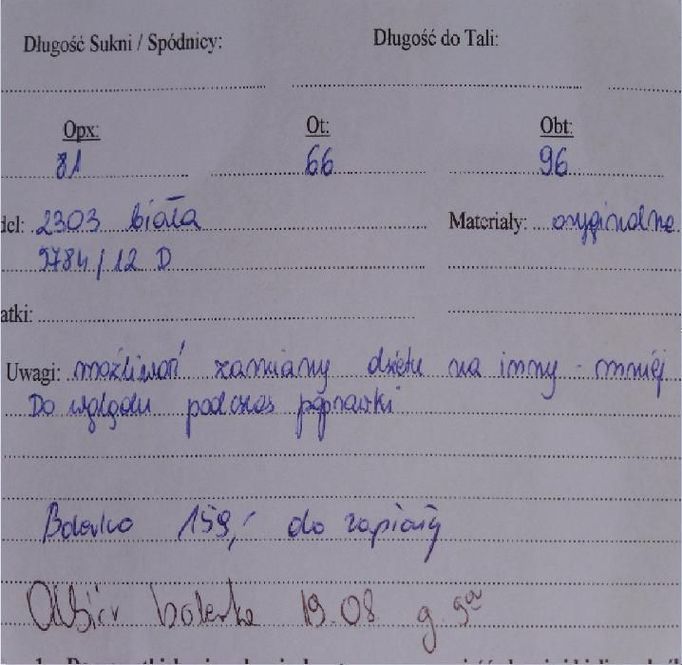 Długość Sukni / Spódnicy: Długość do Tali:
Opx: Ot: Obt:
81 66 96
del: 2303 biała Materiały: oryginalne
9784/12 D
atki:
Uwagi: możliwość zamiany dekltu na inny - mniej
Do wglądu podczas poprawki
Bolerko 159,- do zapłaty
Odbiór bolerka 19.08 g. 9ºº